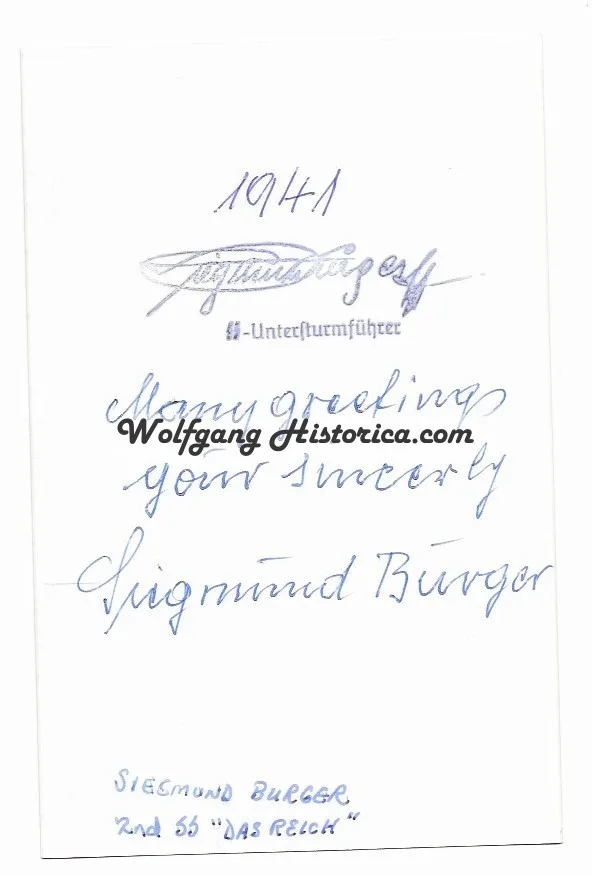 1941
ᛋᛋ-Untersturmführer
Many greetings
Wolfgang Historica.com
your sincerly
Siegmund Burger
SIEGMUND BURGER
2nd SS "DAS REICH"